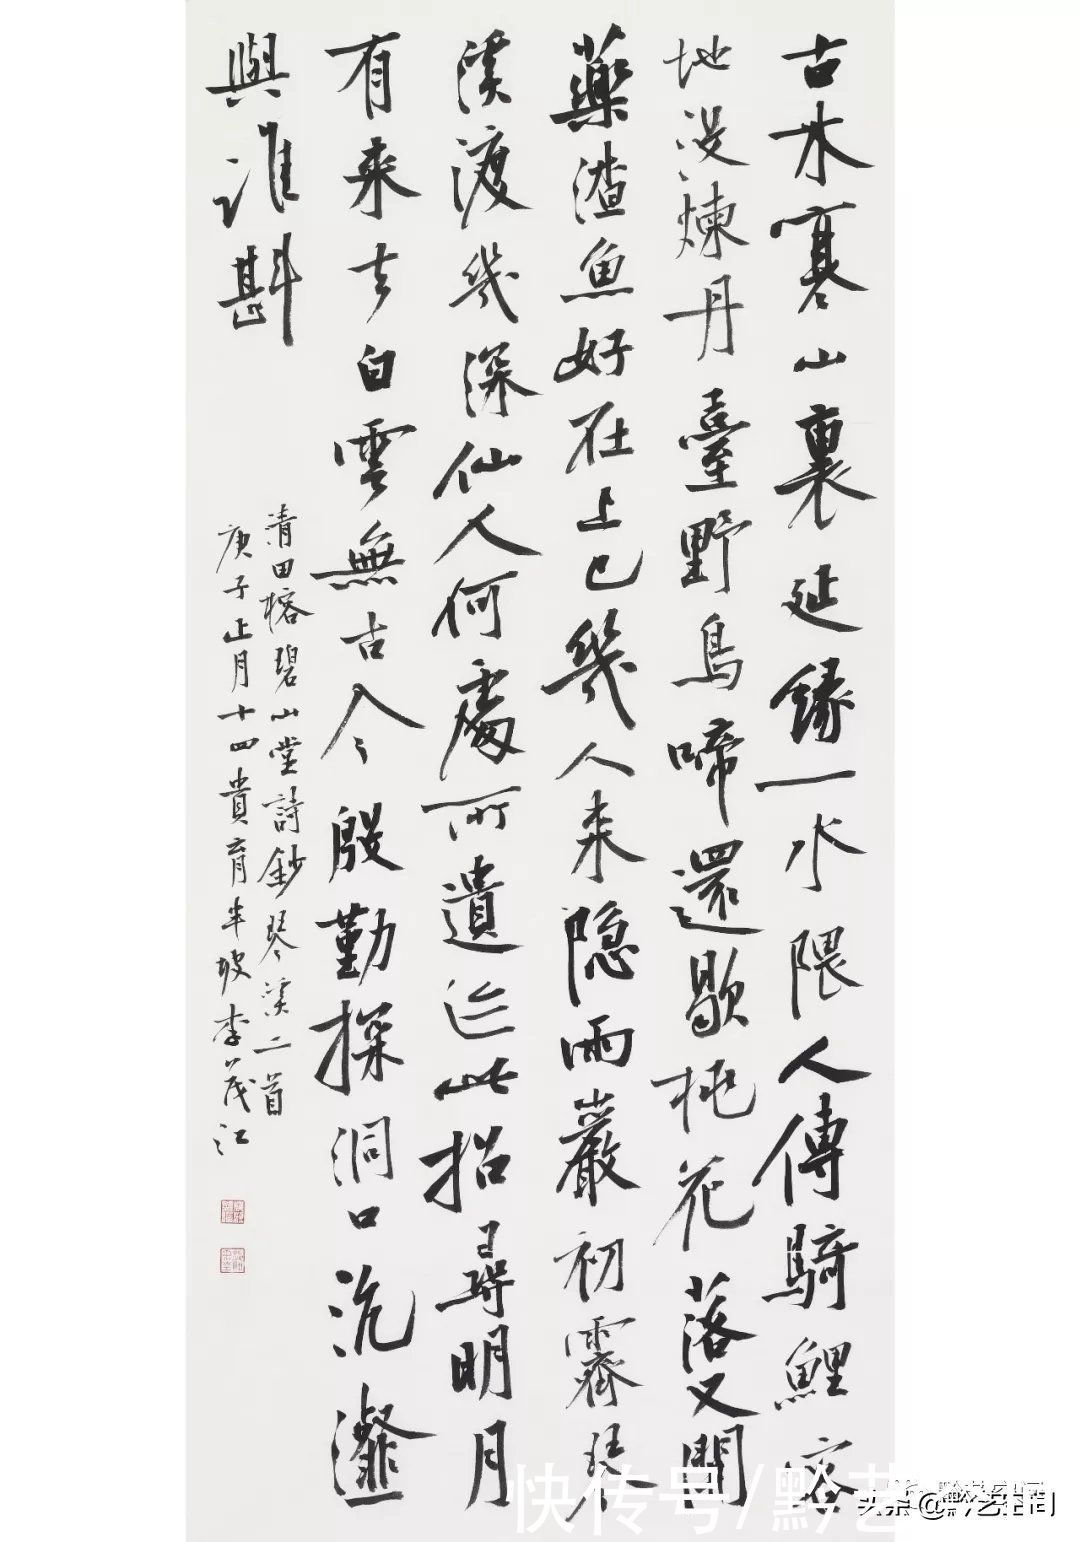 古木寒山裏延緣一水隈人傳騎鯉客
地沒煉丹臺野鳥啼還歇桃花落又開
藥渣魚好在上巳幾人来隐雨巖初霽琴
溪渡幾深仙人何處所遺迹此招尋明月
有来去白雲無古今殷勤探洞口沆瀣
與誰斟
清田榕碧山堂詩鈔琴溪二首
庚子正月十四貴育半坡李茂江
快传号/黔艺
头条@黔艺空间